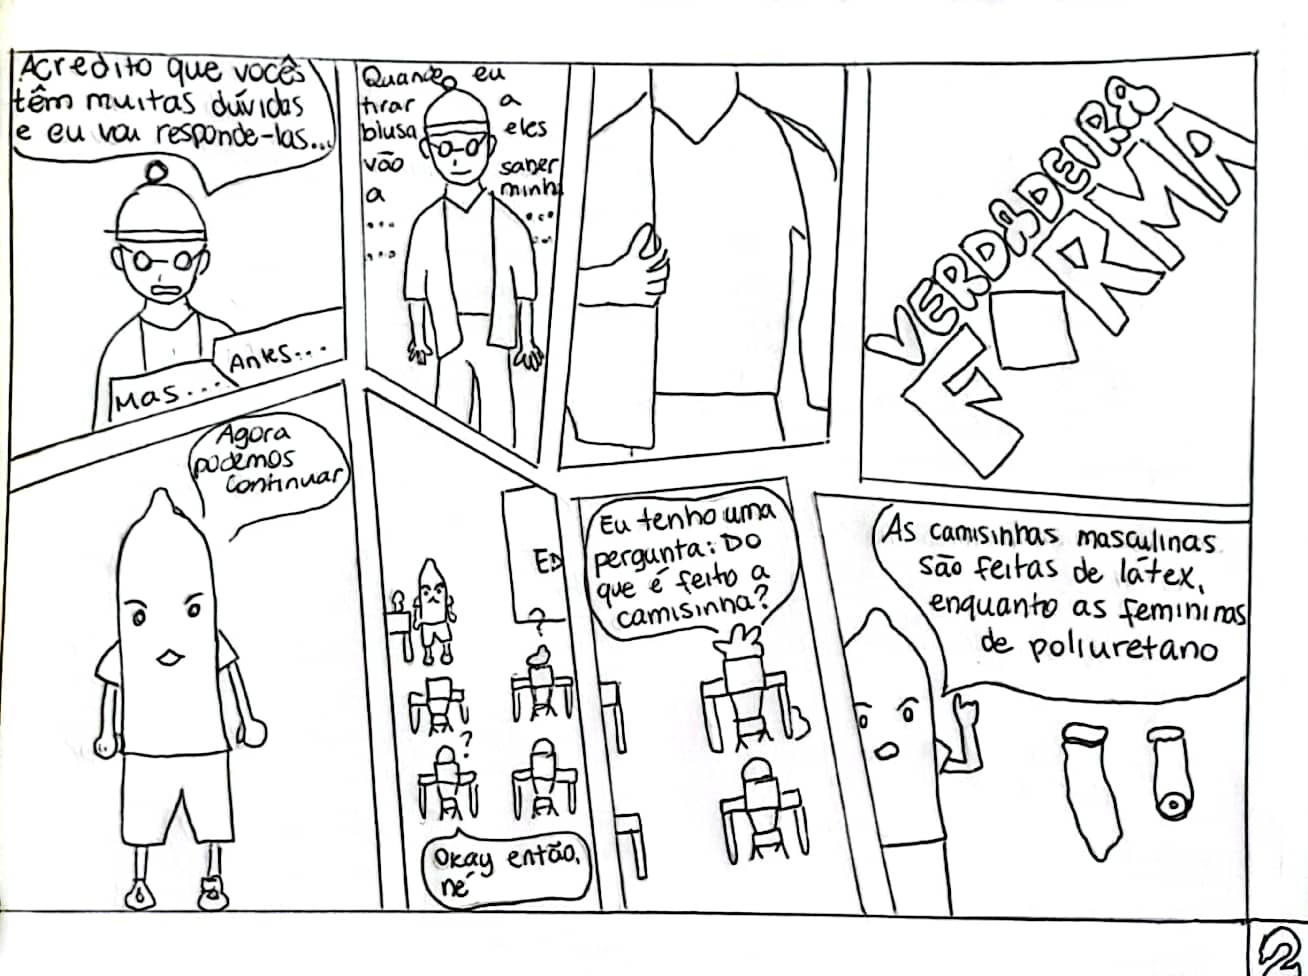 Acredito que vocês
têm muitas dúvidas
e eu vou responde-las...
Mas....
Antes...
Quando eu
tirar a
blusa eles
vão saber
a minha
... ...
... ...
VERDADEIRA
FORMA
Agora
podemos
continuar
ED
?
?
Okay então,
né
Eu tenho uma
pergunta: Do
que é feito a
camisinha?
As camisinhas masculinas
são feitas de látex,
enquanto as femininas
de poliuretano
2